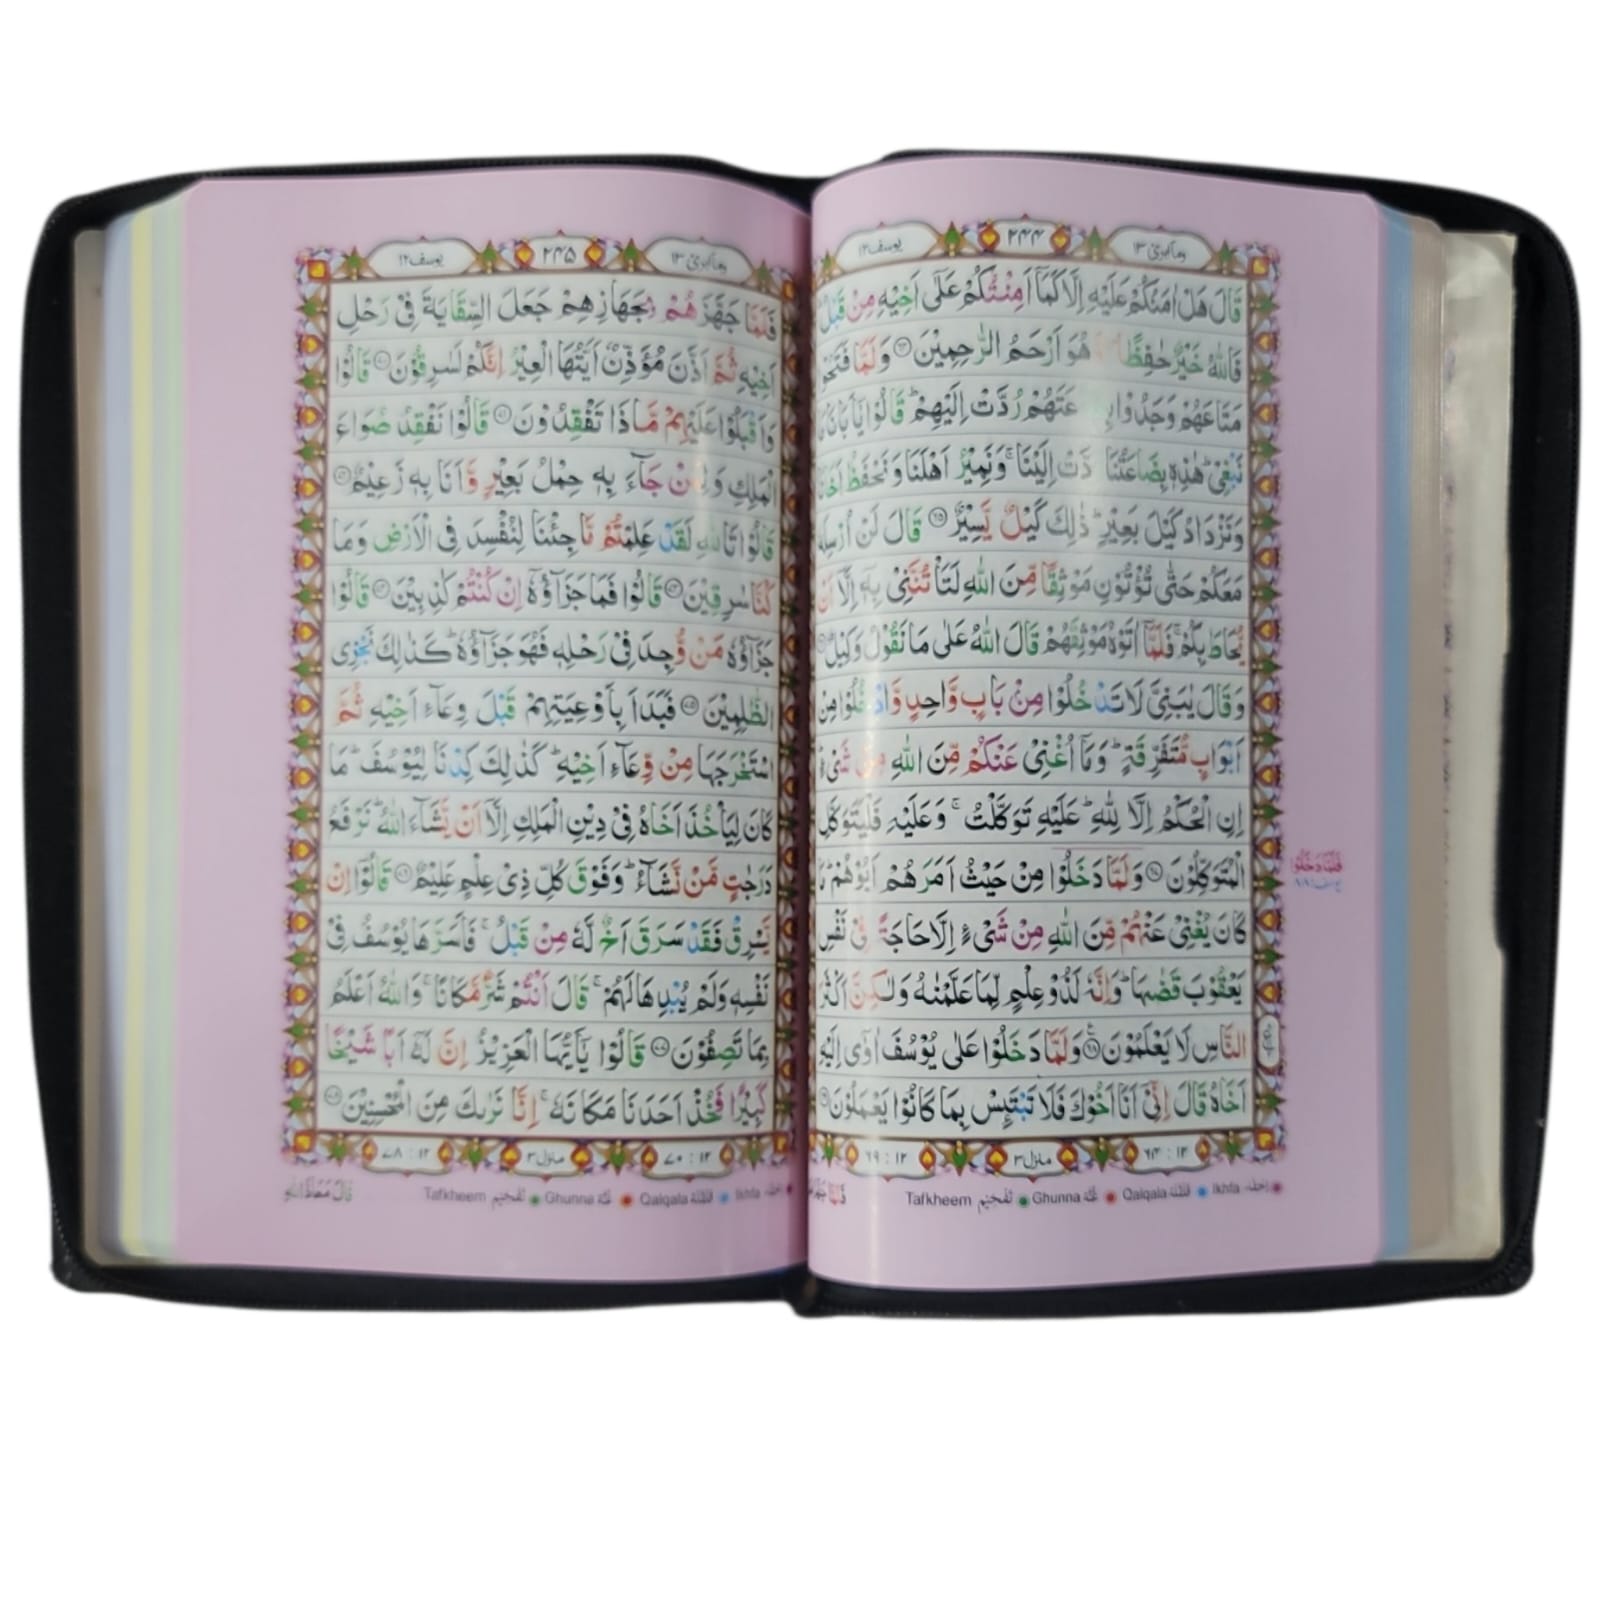 وما ابرئ ۱۳
۲۴۴
یوسف ۱۲
قَالَ هَلْ اٰمَنُكُمْ عَلَيْهِ اِلَّا كَمَاۤ اَمِنْتُكُمْ عَلٰۤى اَخِيْهِ مِنْ قَبْلُ
فَاللّٰهُ خَيْرٌ حٰفِظًا هُوَ اَرْحَمُ الرّٰحِمِيْنَ ۶۴ وَلَمَّا فَتَحُوْا
مَتَاعَهُمْ وَجَدُوْا عَتَهُمْ رُدَّتْ اِلَيْهِمْ ؕ قَالُوْا يٰۤاَبَانَا مَا
نَبْغِىْ ؕ هٰذِهٖ بِضَاعَتُنَا دَّتْ اِلَيْنَا ۚ وَنَمِيْرُ اَهْلَنَا وَنَحْفَظُ اَخَانَا
وَنَزْدَادُ كَيْلَ بَعِيْرٍ ؕ ذٰلِكَ كَيْلٌ يَّسِيْرٌ ۶۵ قَالَ لَنْ اُرْسِلَهٗ
مَعَكُمْ حَتّٰى تُؤْتُوْنِ مَوْثِقًا مِّنَ اللّٰهِ لَتَاْتُنَّنِىْ بِهٖۤ اِلَّاۤ اَنْ
يُّحَاطَ بِكُمْ ۚ فَلَمَّاۤ اٰتَوْهُ مَوْثِقَهُمْ قَالَ اللّٰهُ عَلٰى مَا نَقُوْلُ وَكِيْلٌ
وَقَالَ يٰبَنِىَّ لَا تَدْخُلُوْا مِنْۢ بَابٍ وَّاحِدٍ وَّادْخُلُوْا مِنْ
اَبْوَابٍ مُّتَفَرِّقَةٍ ؕ وَمَاۤ اُغْنِىْ عَنْكُمْ مِّنَ اللّٰهِ مِنْ شَىْءٍ
اِنِ الْحُكْمُ اِلَّا لِلّٰهِ ؕ عَلَيْهِ تَوَكَّلْتُ ۚ وَعَلَيْهِ فَلْيَتَوَكَّلِ
الْمُتَوَكِّلُوْنَ ۶۷ وَلَمَّا دَخَلُوْا مِنْ حَيْثُ اَمَرَهُمْ اَبُوْهُمْ ؕ مَا
كَانَ يُغْنِىْ عَنْهُمْ مِّنَ اللّٰهِ مِنْ شَىْءٍ اِلَّا حَاجَةً فِىْ نَفْسِ
يَعْقُوْبَ قَضٰىهَا ؕ وَاِنَّهٗ لَذُوْ عِلْمٍ لِّمَا عَلَّمْنٰهُ وَلٰكِنَّ اَكْثَرَ
النَّاسِ لَا يَعْلَمُوْنَ ۶۸ وَلَمَّا دَخَلُوْا عَلٰى يُوْسُفَ اٰوٰۤى اِلَيْهِ
اَخَاهُ قَالَ اِنِّىْۤ اَنَا اَخُوْكَ فَلَا تَبْتَئِسْ بِمَا كَانُوْا يَعْمَلُوْنَ ۶۹
۱۲ : ۶۴
منزل ۳
۱۲ : ۶۹
Tafkheem تفخیم Ghunna غنّه Qalqala قلقله Ikhfa اخفاء
وما ابرئ ۱۳
۲۴۵
یوسف ۱۲
فَلَمَّا جَهَّزَهُمْ بِجَهَازِهِمْ جَعَلَ السِّقَايَةَ فِىْ رَحْلِ
اَخِيْهِ ثُمَّ اَذَّنَ مُؤَذِّنٌ اَيَّتُهَا الْعِيْرُ اِنَّكُمْ لَسٰرِقُوْنَ ۷۰ قَالُوْا
وَاَقْبَلُوْا عَلَيْهِمْ مَّاذَا تَفْقِدُوْنَ ۷۱ قَالُوْا نَفْقِدُ صُوَاعَ
الْمَلِكِ وَلِمَنْ جَآءَ بِهٖ حِمْلُ بَعِيْرٍ وَّاَنَا بِهٖ زَعِيْمٌ ۷۲
قَالُوْا تَاللّٰهِ لَقَدْ عَلِمْتُمْ مَّا جِئْنَا لِنُفْسِدَ فِى الْاَرْضِ وَمَا
كُنَّا سٰرِقِيْنَ ۷۳ قَالُوْا فَمَا جَزَآؤُهٗۤ اِنْ كُنْتُمْ كٰذِبِيْنَ ۷۴ قَالُوْا
جَزَآؤُهٗ مَنْ وُّجِدَ فِىْ رَحْلِهٖ فَهُوَ جَزَآؤُهٗ ؕ كَذٰلِكَ نَجْزِى
الظّٰلِمِيْنَ ۷۵ فَبَدَاَ بِاَوْعِيَتِهِمْ قَبْلَ وِعَآءِ اَخِيْهِ ثُمَّ
اسْتَخْرَجَهَا مِنْ وِّعَآءِ اَخِيْهِ ؕ كَذٰلِكَ كِدْنَا لِيُوْسُفَ ؕ مَا
كَانَ لِيَاْخُذَ اَخَاهُ فِىْ دِيْنِ الْمَلِكِ اِلَّاۤ اَنْ يَّشَآءَ اللّٰهُ ؕ نَرْفَعُ
دَرَجٰتٍ مَّنْ نَّشَآءُ ؕ وَفَوْقَ كُلِّ ذِىْ عِلْمٍ عَلِيْمٌ ۷۶ قَالُوْۤا اِنْ
يَّسْرِقْ فَقَدْ سَرَقَ اَخٌ لَّهٗ مِنْ قَبْلُ ۚ فَاَسَرَّهَا يُوْسُفُ فِىْ
نَفْسِهٖ وَلَمْ يُبْدِهَا لَهُمْ ۚ قَالَ اَنْتُمْ شَرٌّ مَّكَانًا ۚ وَاللّٰهُ اَعْلَمُ
بِمَا تَصِفُوْنَ ۷۷ قَالُوْا يٰۤاَيُّهَا الْعَزِيْزُ اِنَّ لَهٗۤ اَبًا شَيْخًا
كَبِيْرًا فَخُذْ اَحَدَنَا مَكَانَهٗ ۚ اِنَّا نَرٰىكَ مِنَ الْمُحْسِنِيْنَ ۷۸
۱۲ : ۷۰
منزل ۳
۱۲ : ۷۸
Tafkheem تفخیم Ghunna غنّه Qalqala قلقله Ikhfa اخفاء
قال معاذ الله